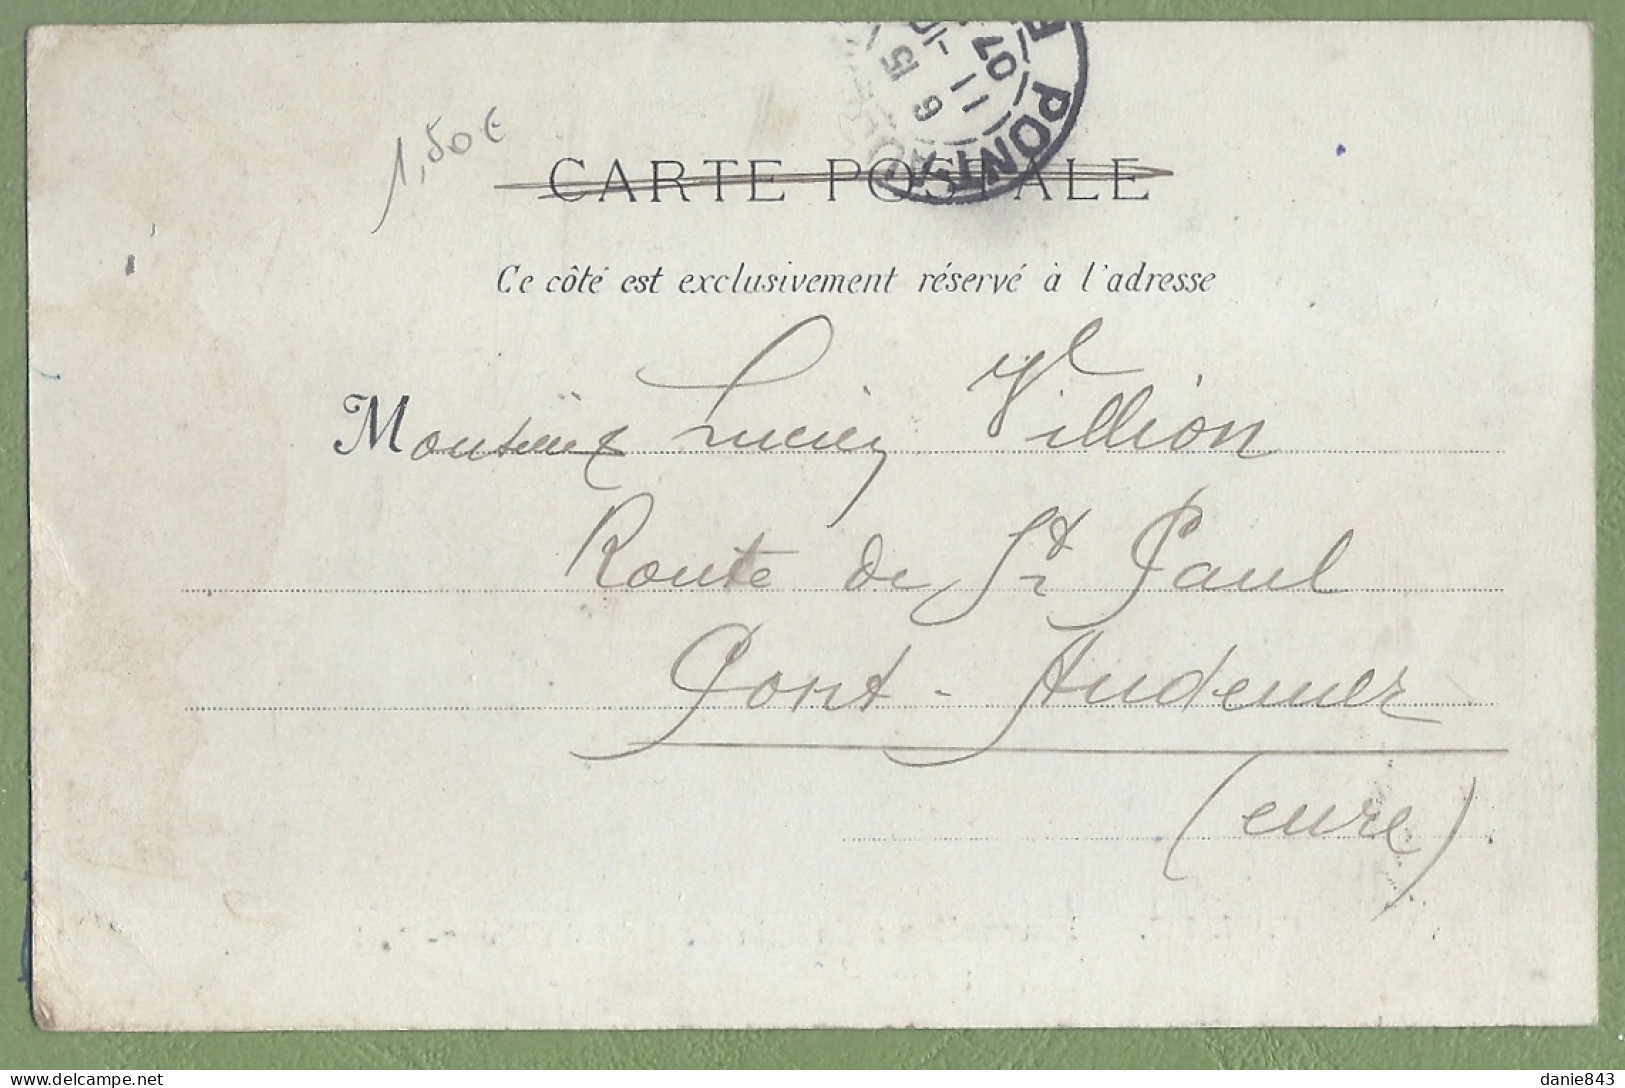 1,50€
PONT
9 15
11 - 10
07
CARTE POSTALE
Ce côté est exclusivement réservé à l'adresse
Monsieur Lucien Villion
Route de St Paul
Pont-Audemer
(eure)
delcampe.net
danie843